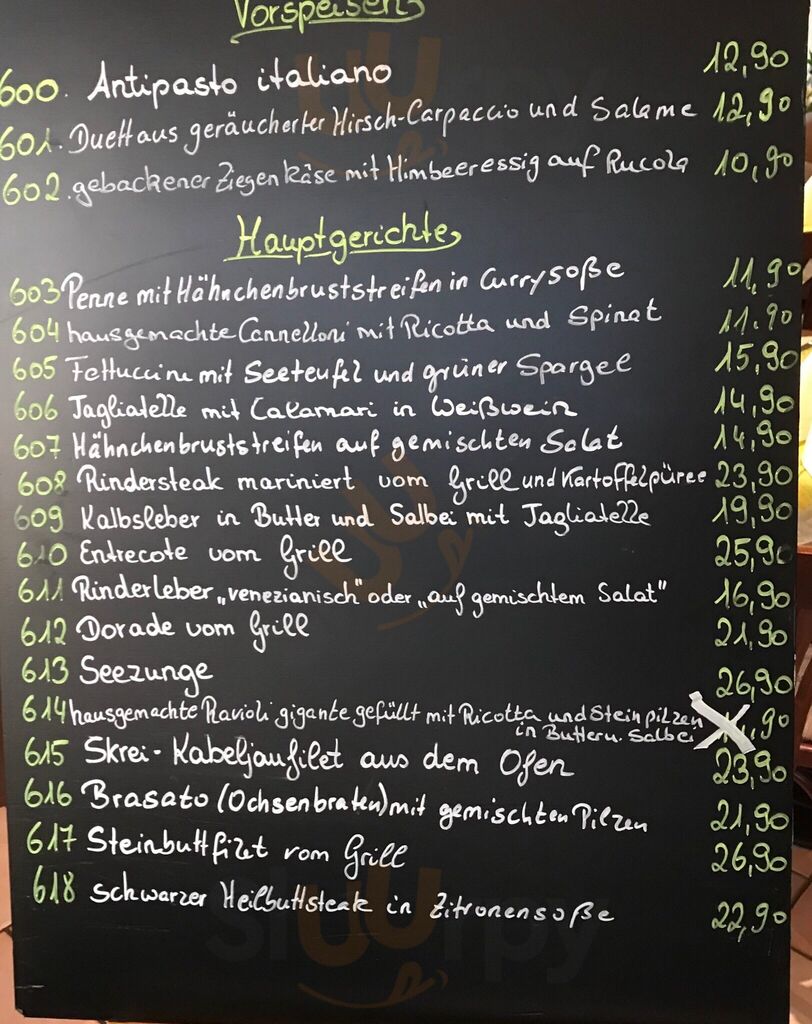 Vorspeisen
600. Antipasto italiano 12,90
601. Duett aus geräucherter Hirsch-Carpaccio und Salame 12,90
602. gebackener Ziegenkäse mit Himbeeressig auf Rucola 10,90
Hauptgerichte
603 Penne mit Hähnchenbruststreifen in Currysoße 11,90
604 hausgemachte Cannelloni mit Ricotta und Spinat 11.90
605 Fettuccine mit Seeteufel und grüner Spargel 15,90
606 Tagliatelle mit Calamari in Weißwein 14,90
607 Hähnchenbruststreifen auf gemischten Salat 14,90
608 Rindersteak mariniert vom Grill und Kartoffelpüree 23,90
609 Kalbsleber in Butter und Salbei mit Tagliatelle 19,90
610 Entrecote vom Grill 25,90
611 Rinderleber „venezianisch" oder „auf gemischtem Salat" 16,90
612 Dorade vom Grill 21,90
613 Seezunge 26,90
614 hausgemachte Ravioli gigante gefüllt mit Ricotta und Steinpilzen ,90
in Butter u. Salbei
615 Skrei-Kabeljaufilet aus dem Ofen 23,90
616 Brasato (Ochsenbraten) mit gemischten Pilzen 21,90
617 Steinbuttfilet vom Grill 26,90
618 schwarzer Heilbuttsteak in Zitronensoße 22,90
sluurpy